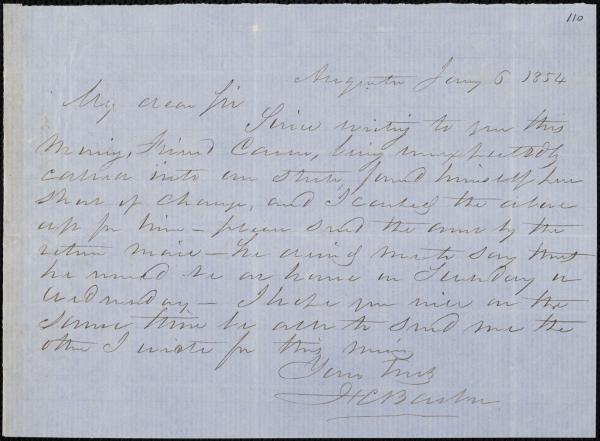 110
Augusta Jany 6 1854
My dear Sir
Since writing to you this
morning, Friend Carver, being unexpectedly
called into our State, found himself here
short of change, and I cashed the above
for him – please send the amt by the
return mail – he did not say that
he would be at home on Tuesday or
Wednesday – I hope you will at the
same time be able to send me the
other I wrote for this morning
Yours truly